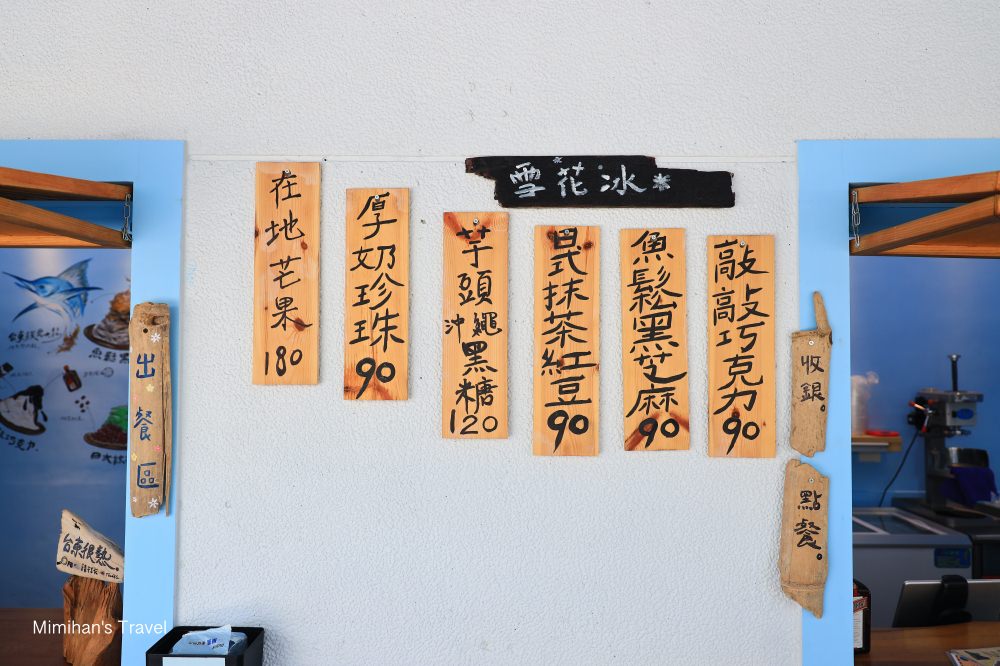 雪花冰
敲敲巧克力
90
魚鬆黑芝麻
90
日式抹茶紅豆
90
芋頭
沖繩黑糖
120
厚奶珍珠
90
在地芒果
180
收銀。
點餐。
出餐區
台東很熱
Mimihan's Travel